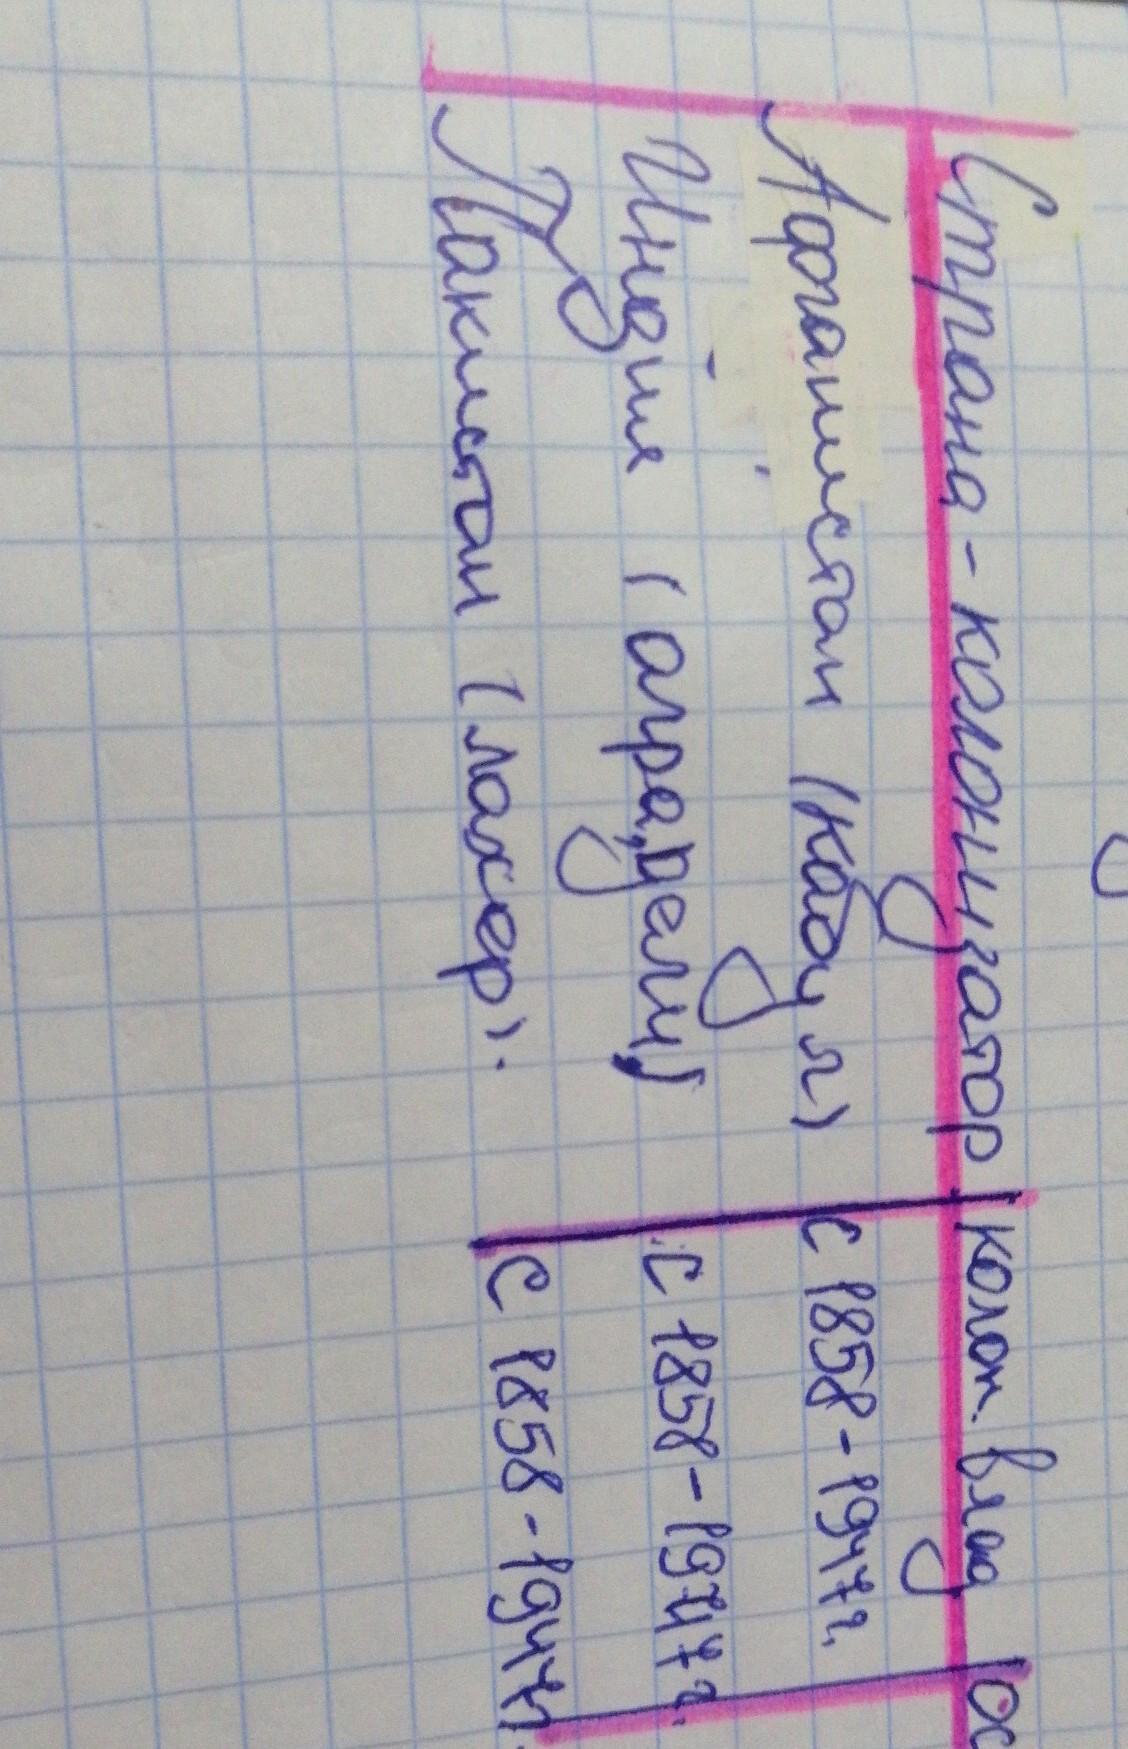 Страна-колонизатор колон. влад ос
Афганистан (Кабул) с 1858-1947г.
Индия (агра, дели) с 1858-1947г.
Пакистан (лахер). С 1858-1947г.